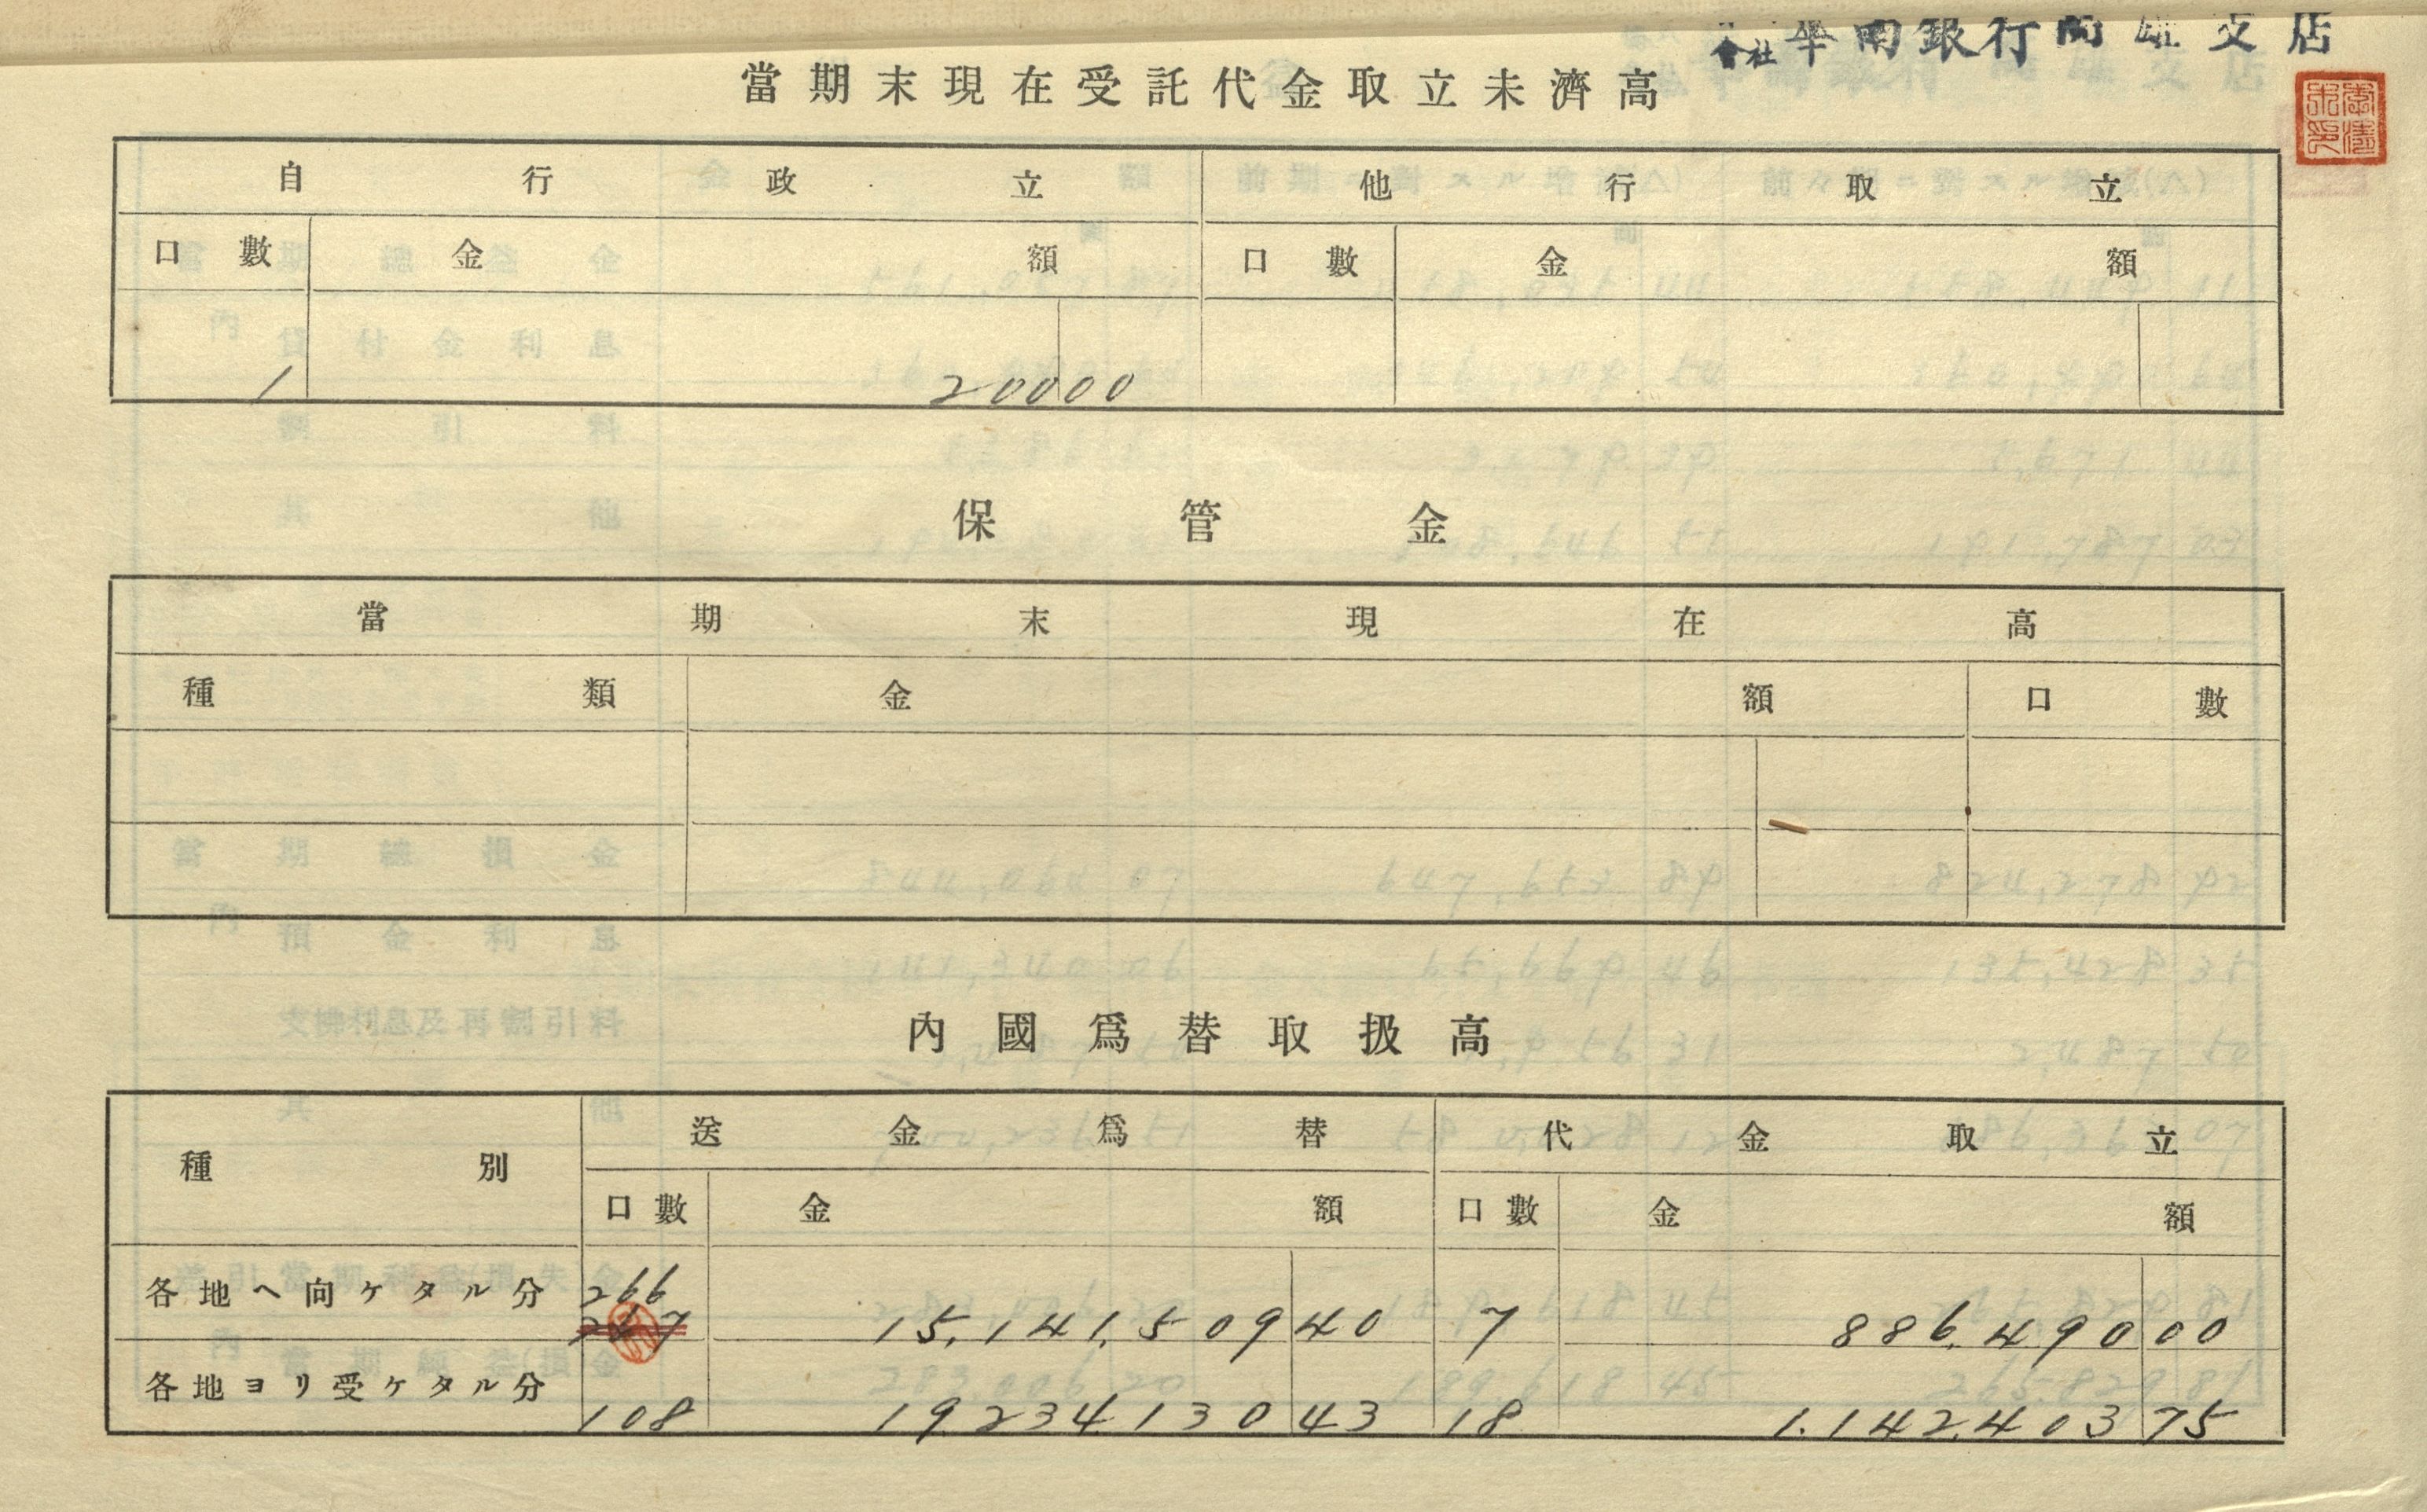 會社 華南銀行高雄支店
當期末現在受託代金取立未濟高
自行政立 他行取立
口數 金額 口數 金額
1 20000
保管金
當期末現在高
種類 金額 口數
內國爲替取扱高
種別 送金爲替 代金取立
口數 金額 口數 金額
266
各地ヘ向ケタル分 15,141,509 40 7 886,490 00
各地ヨリ受ケタル分 108 19,234,130 43 18 1,142,403 75